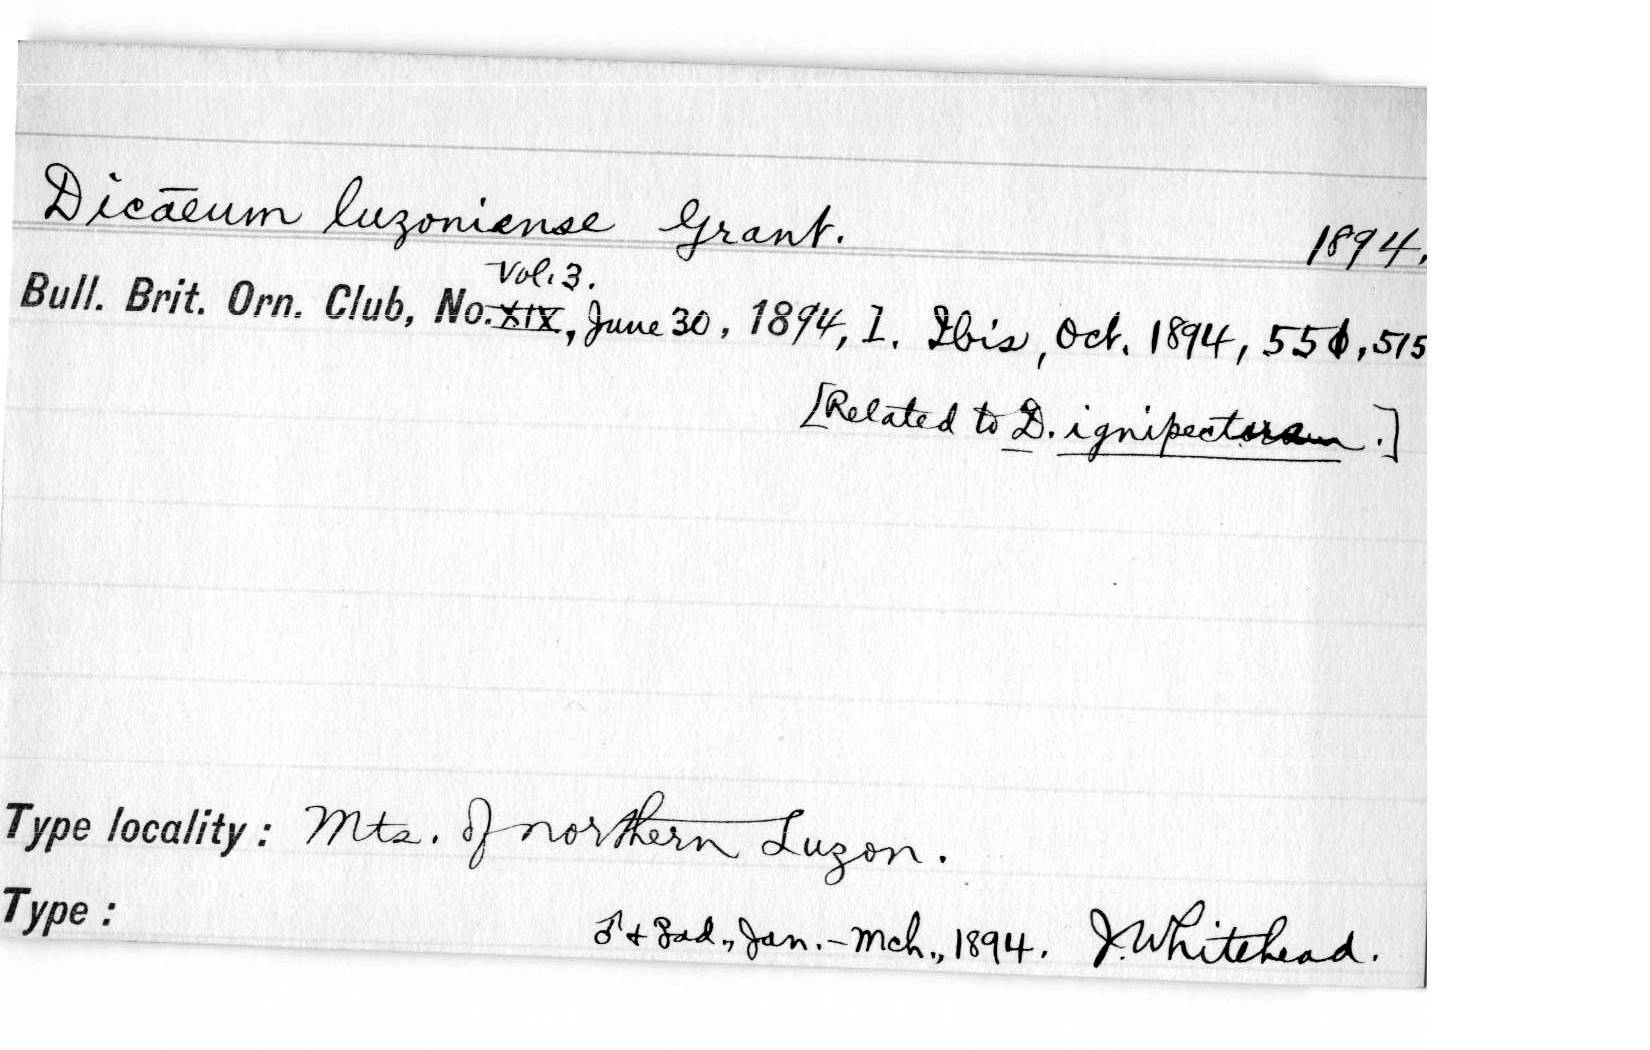 Dicaeum luzoniense Grant. 1894.
Vol. 3.
Bull. Brit. Orn. Club, No. XIX, June 30, 1894, 1. Ibis, Oct. 1894, 550, 515
[Related to D. ignipectus.]
Type locality: Mts. of northern Luzon.
Type: ♂ + ♀ ad., Jan. - Mch., 1894. J. Whitehead.